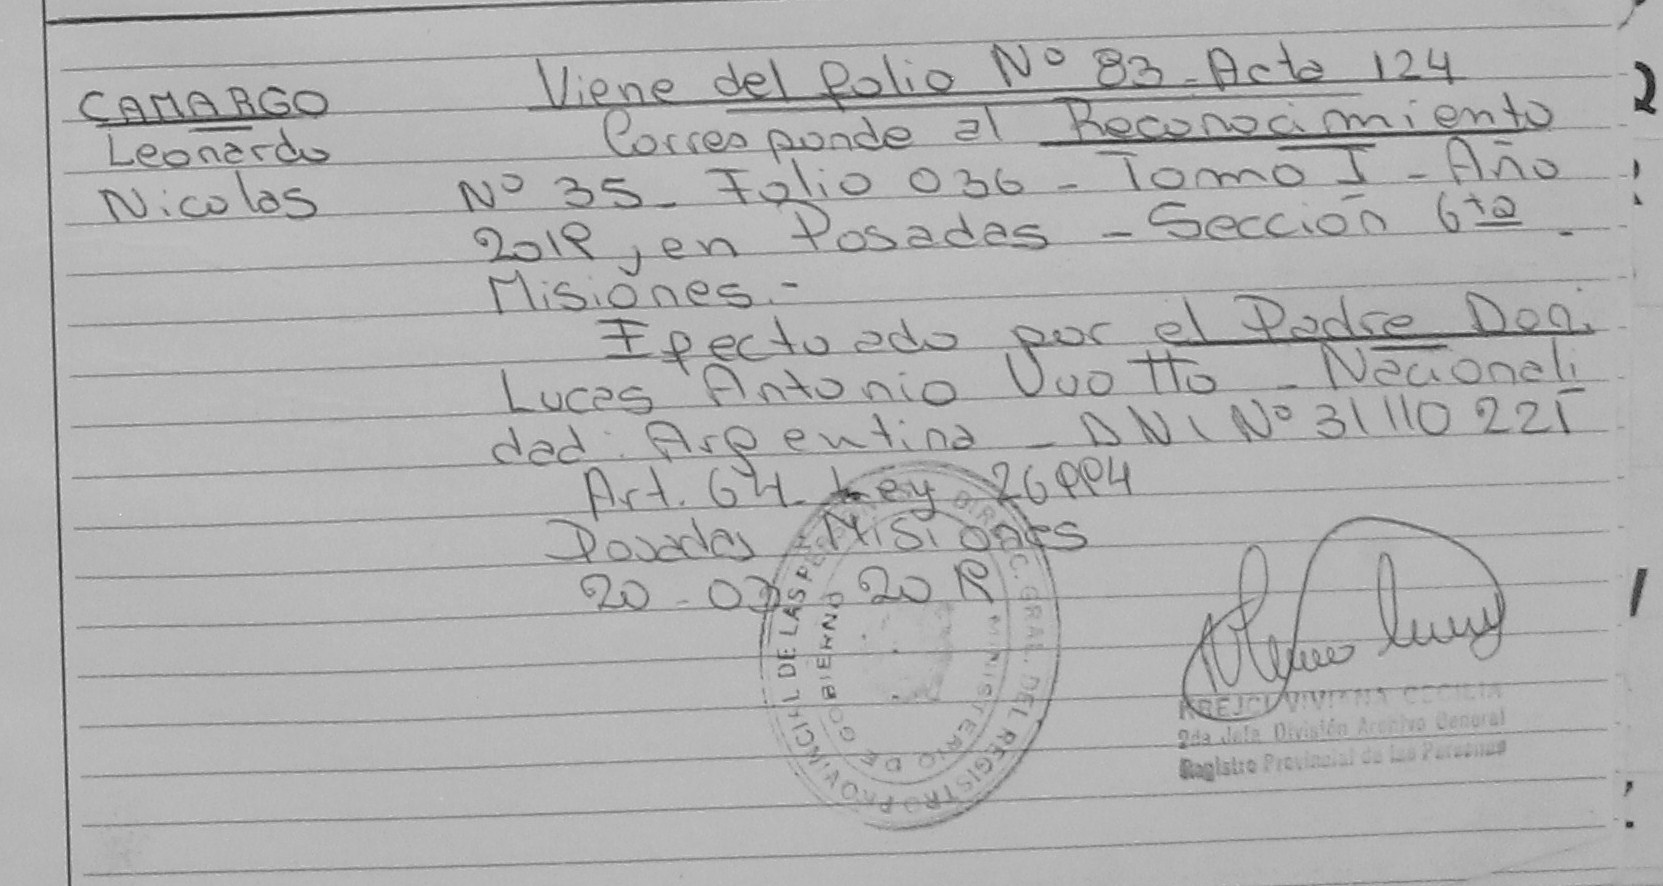 CAMARGO
Leonardo
Nicolas
Viene del folio Nº 83 - Acta 124
Corresponde al Reconocimiento
Nº 35 - Folio 036 - Tomo I - Año
2019, en Posadas - Sección 6ta -
Misiones.-
Efectuado por el Padre Don:
Lucas Antonio Vuotto - Nacionali
dad: Argentina - DNI Nº 31 110 221
Art. 64 - Ley 26994
Posadas Misiones
20 - 03 2019
DIREC. GRAL. DEL REGISTRO PROVINCIAL DE LAS PERSONAS
MINISTERIO DE GOBIERNO
KREJCI VIVIANA CECILIA
2da Jefa División Archivo General
Registro Provincial de las Personas